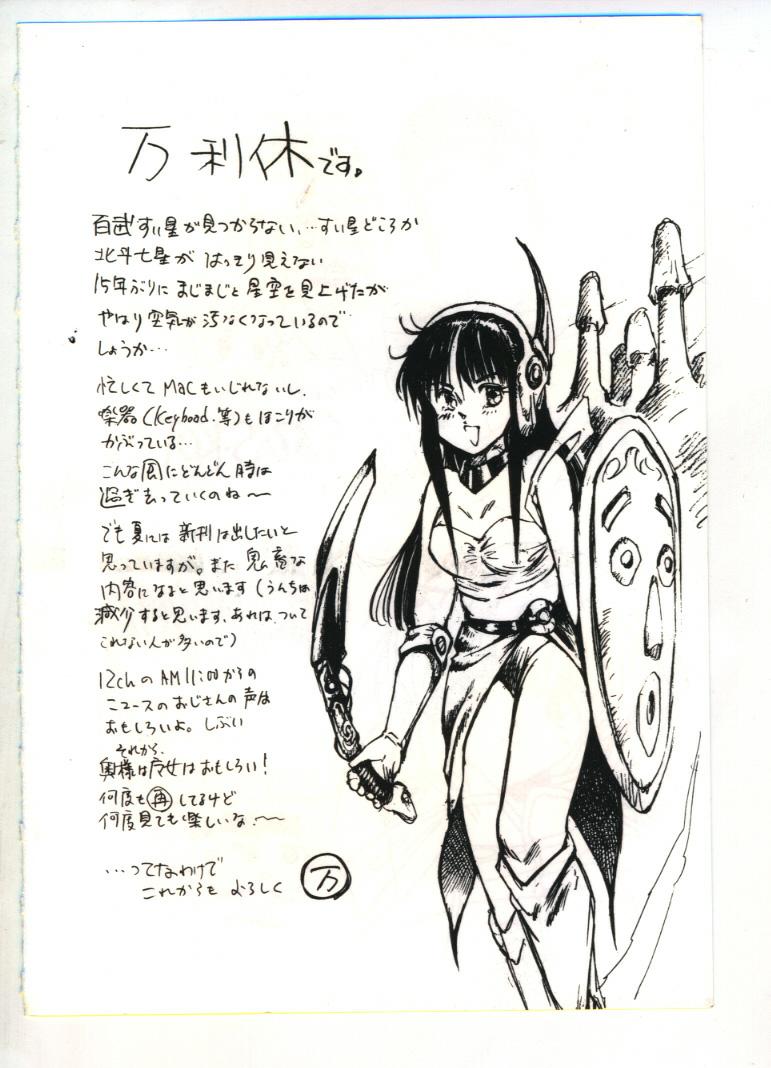 万利休です。
百武すい星が見つからない、…すい星どころか
北斗七星が はっきり見えない
15年ぶりに まじまじと 星空を見上げたが
やはり空気が汚なくなっているので
しょうか…
忙しくて Macもいじれないし、
楽器(Keyboad.等)もほこりが
かぶっている…
こんな風にどんどん 時は
過ぎ去っていくのね〜
でも夏には 新刊は出したいと
思っていますが。また 鬼畜な
内容になると思います(うんちは
減少すると思います、あれは、ついて
これない人が多いので)
12chのAM11:00からの
ニュースのおじさんの声は
おもしろいよ。しぶい
それから、
奥様は魔女はおもしろい!
何度も再してるけど
何度見ても楽しいな.〜
…ってなわけで
これからも よろしく
万